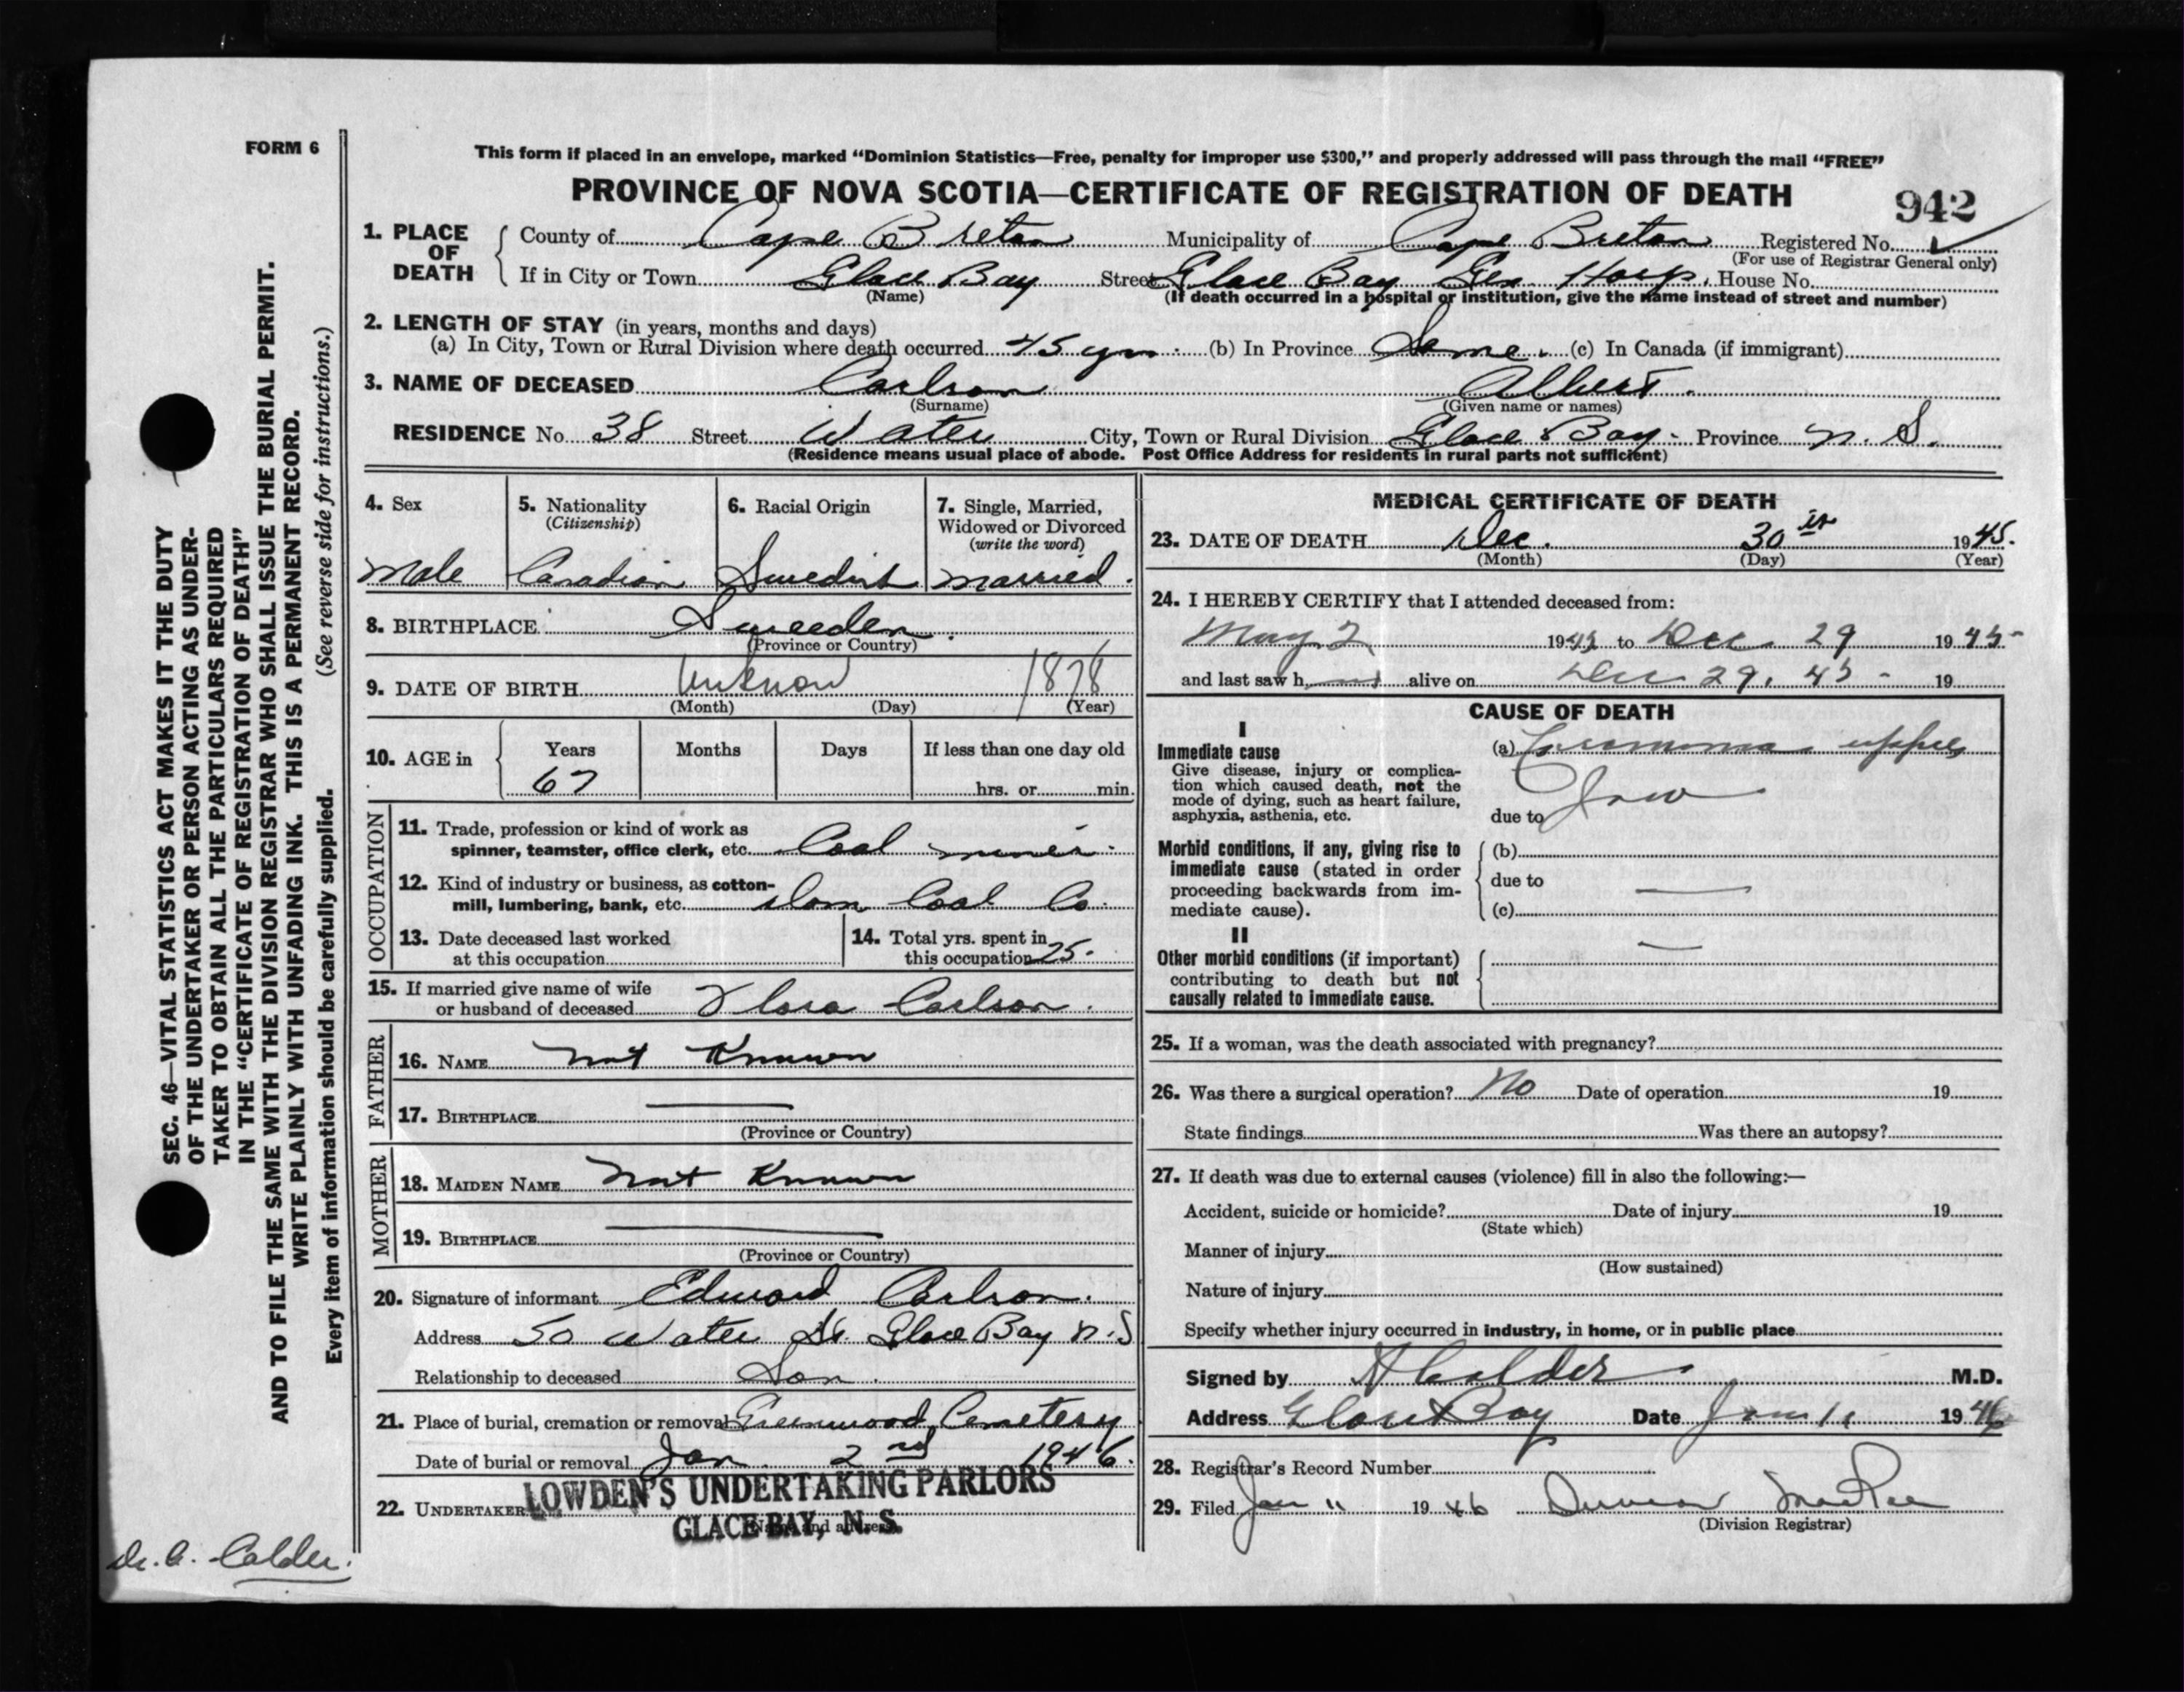 FORM 6
This form if placed in an envelope, marked “Dominion Statistics—Free, penalty for improper use $300,” and properly addressed will pass through the mail “FREE”
PROVINCE OF NOVA SCOTIA—CERTIFICATE OF REGISTRATION OF DEATH
942
1. PLACE OF DEATH
County of Cape Breton Municipality of Cape Breton Registered No.
(For use of Registrar General only)
If in City or Town Glace Bay Street Glace Bay Gen. Hosp. House No.
(Name) (If death occurred in a hospital or institution, give the name instead of street and number)
2. LENGTH OF STAY (in years, months and days)
(a) In City, Town or Rural Division where death occurred 45 yrs. (b) In Province Same. (c) In Canada (if immigrant)
3. NAME OF DECEASED Carlson Albert.
(Surname) (Given name or names)
RESIDENCE No. 38 Street Water City, Town or Rural Division Glace Bay. Province N. S.
(Residence means usual place of abode. Post Office Address for residents in rural parts not sufficient)
4. Sex
Male
5. Nationality
(Citizenship)
Canadian
6. Racial Origin
Swedish
7. Single, Married,
Widowed or Divorced
(write the word)
Married.
8. BIRTHPLACE Sweeden.
(Province or Country)
9. DATE OF BIRTH Unknow 1878
(Month) (Day) (Year)
10. AGE in
Years Months Days If less than one day old
67 hrs. or min.
OCCUPATION
11. Trade, profession or kind of work as
spinner, teamster, office clerk, etc. Coal miner.
12. Kind of industry or business, as cotton-
mill, lumbering, bank, etc. Dom Coal Co.
13. Date deceased last worked
at this occupation
14. Total yrs. spent in
this occupation 25.
15. If married give name of wife
or husband of deceased Flora Carlson.
FATHER
16. NAME Not Known
17. BIRTHPLACE
(Province or Country)
MOTHER
18. MAIDEN NAME Not Known
19. BIRTHPLACE
(Province or Country)
20. Signature of informant Edward Carlson.
Address 50 Water St. Glace Bay N.S
Relationship to deceased Son.
21. Place of burial, cremation or removal Greenwood Cemetery
Date of burial or removal Jan. 2nd 1946.
22. UNDERTAKER LOWDEN'S UNDERTAKING PARLORS
GLACE BAY, N. S.
(Name and address)
MEDICAL CERTIFICATE OF DEATH
23. DATE OF DEATH Dec. 30th 1945.
(Month) (Day) (Year)
24. I HEREBY CERTIFY that I attended deceased from:
May 2 19 to Dec 29 1945
and last saw h alive on Dec 29. 45 19
CAUSE OF DEATH
I
Immediate cause
Give disease, injury or complica-
tion which caused death, not the
mode of dying, such as heart failure,
asphyxia, asthenia, etc.
(a) upper
due to Jaw
Morbid conditions, if any, giving rise to
immediate cause (stated in order
proceeding backwards from im-
mediate cause).
(b)
due to
(c)
II
Other morbid conditions (if important)
contributing to death but not
causally related to immediate cause.
25. If a woman, was the death associated with pregnancy?
26. Was there a surgical operation? No Date of operation 19
State findings Was there an autopsy?
27. If death was due to external causes (violence) fill in also the following:—
Accident, suicide or homicide? Date of injury 19
(State which)
Manner of injury
(How sustained)
Nature of injury
Specify whether injury occurred in industry, in home, or in public place
Signed by A Calder M.D.
Address Glace Bay Date Jan 11 1946
28. Registrar's Record Number
29. Filed Jan 11 1946 Duncan MacRae
(Division Registrar)
SEC. 46—VITAL STATISTICS ACT MAKES IT THE DUTY
OF THE UNDERTAKER OR PERSON ACTING AS UNDER-
TAKER TO OBTAIN ALL THE PARTICULARS REQUIRED
IN THE “CERTIFICATE OF REGISTRATION OF DEATH”
AND TO FILE THE SAME WITH THE DIVISION REGISTRAR WHO SHALL ISSUE THE BURIAL PERMIT.
WRITE PLAINLY WITH UNFADING INK. THIS IS A PERMANENT RECORD.
Every item of information should be carefully supplied. (See reverse side for instructions.)
Dr. A. Calder.